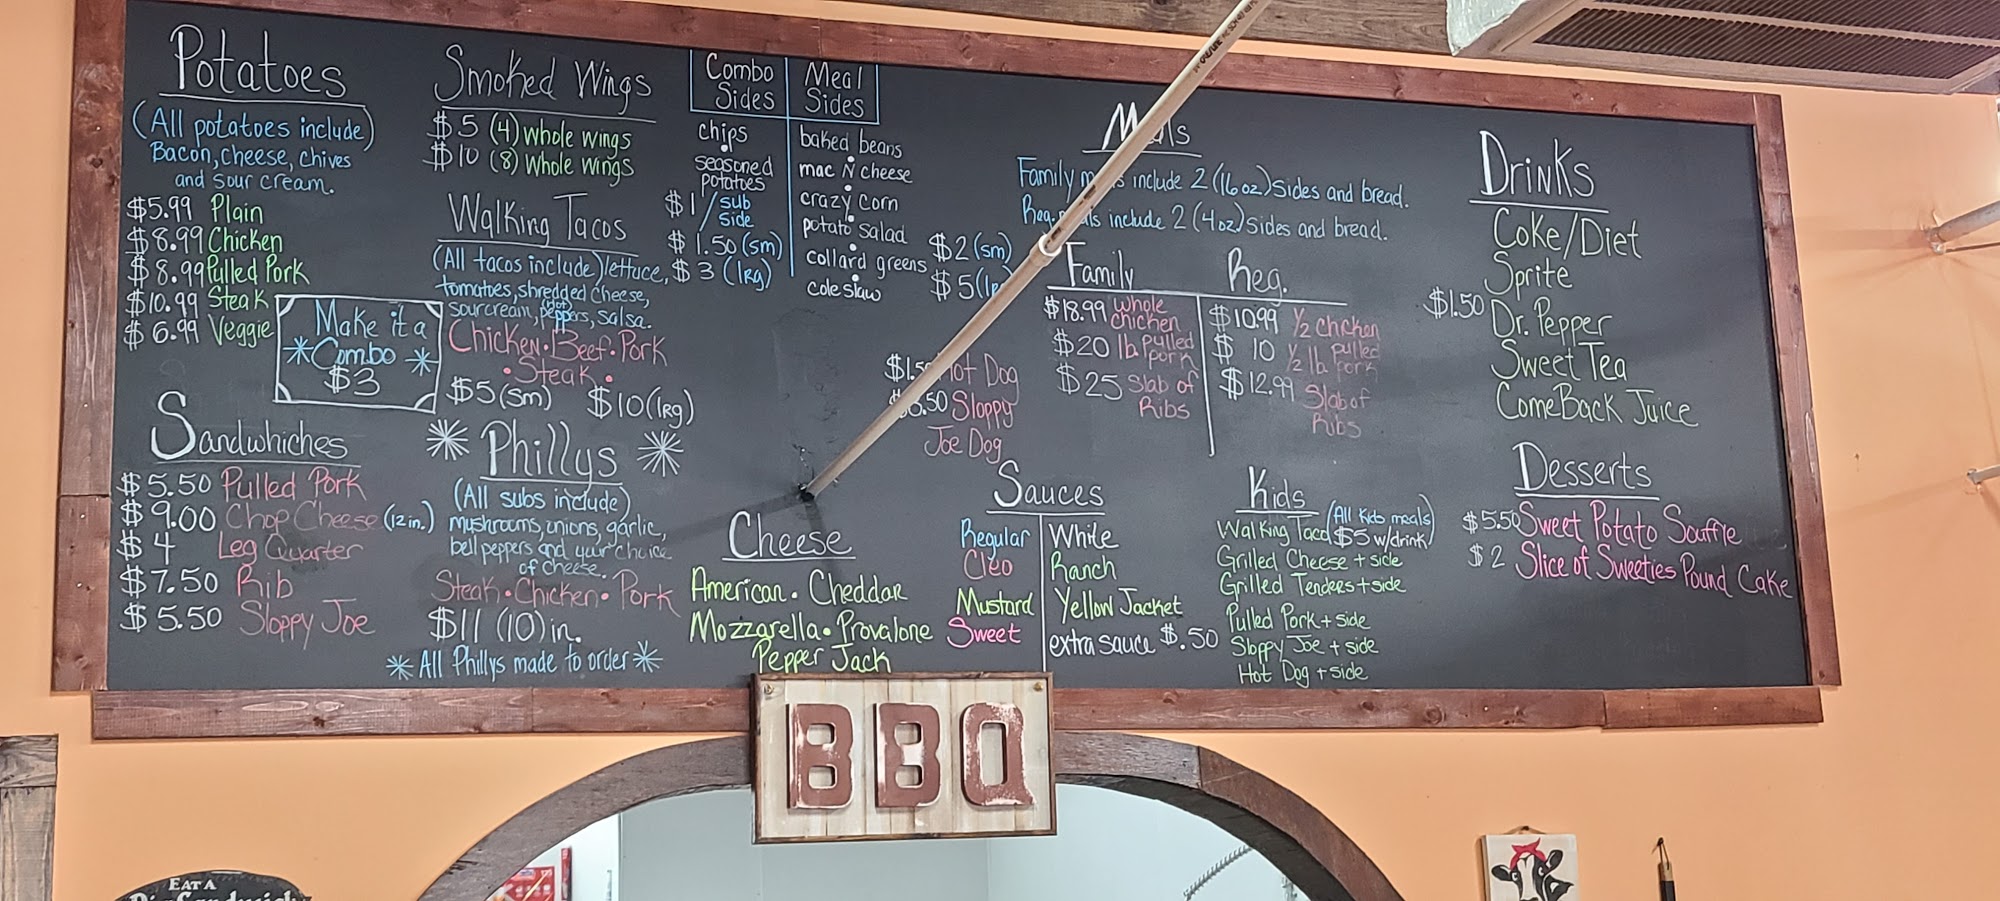 Potatoes
(All potatoes include)
Bacon, cheese, chives
and sour cream.
$5.99 Plain
$8.99 Chicken
$8.99 Pulled Pork
$10.99 Steak
$6.99 Veggie
Make it a
*Combo*
$3
Sandwhiches
$5.50 Pulled Pork
$9.00 Chop Cheese (12in.)
$4 Leg Quarter
$7.50 Rib
$5.50 Sloppy Joe
Smoked Wings
$5 (4) whole wings
$10 (8) Whole wings
Walking Tacos
(All tacos include) lettuce,
tomatoes, shredded cheese,
sourcream, (hot) peppers, salsa.
Chicken • Beef • Pork
• Steak •
$5 (sm) $10 (lrg)
* Phillys *
(All subs include)
mushrooms, onions, garlic,
bell peppers and your choice
of cheese.
Steak • Chicken • Pork
$11 (10) in.
* All Phillys made to order *
Combo Sides
chips
•
seasoned
potatoes
$1 / sub side
$1.50 (sm)
$3 (lrg)
Meal Sides
baked beans
•
mac N cheese
•
crazy corn
•
potato salad
•
collard greens
•
coleslaw
$2 (sm)
$5
Hot Dog
Sloppy
Joe Dog
Cheese
American • Cheddar
Mozzarella • Provalone
Pepper Jack
Family include 2 (16oz) Sides and bread.
Reg. include 2 (4oz) Sides and bread.
Family
$18.99 Whole chicken
$20 lb pulled pork
$25 Slab of Ribs
Reg.
$10.99 1/2 chicken
$10 1/2 lb pulled pork
$12.99 Slab of Ribs
Sauces
Regular
Cleo
Mustard
Sweet
White
Ranch
Yellow Jacket
extra sauce $.50
Kids
(All Kids meals)
$5 w/drink
Walking Taco
Grilled Cheese + side
Grilled Tenders + side
Pulled Pork + side
Sloppy Joe + side
Hot Dog + side
Drinks
$1.50
Coke/Diet
Sprite
Dr. Pepper
Sweet Tea
ComeBack Juice
Desserts
$5.50 Sweet Potato Souffle
$2 Slice of Sweeties Pound Cake
BBQ
EAT A